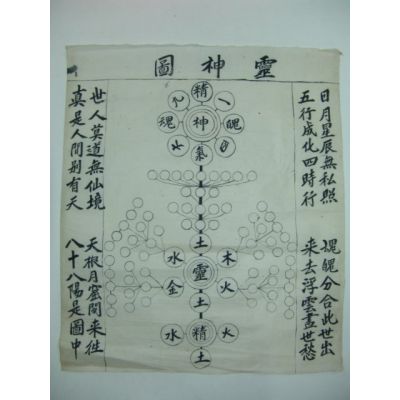 靈神圖
日月星辰無私照
五行成化四時行
魂魄分合此世出
来去浮雲盡世愁
世人莫道無仙境
真是人間别有天
天根月窟閑来往
八十八陽是圖中
精
魂 神 魄
氣
土
水 木
靈
金 火
土
水 精 火
土